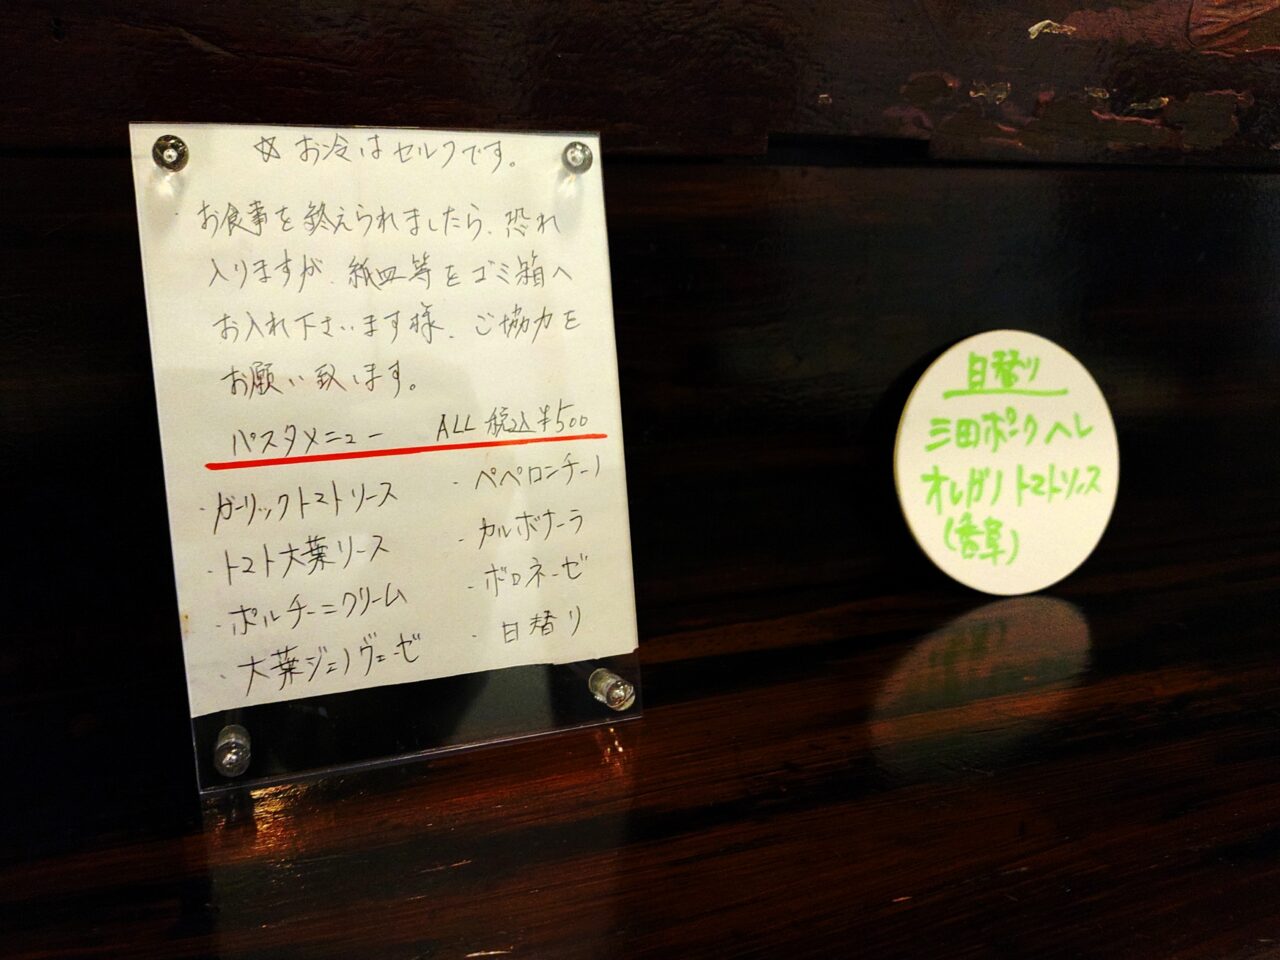 ☆ お冷はセルフです。
・お食事を終えられましたら、恐れ
入りますが、紙皿等をゴミ箱へ
お入れ下さいます様、ご協力を
お願い致します。
パスタメニュー ALL 税込¥500
・ガーリックトマトソース
・トマト大葉ソース
・ポルチーニクリーム
・大葉ジェノヴェーゼ
・ペペロンチーノ
・カルボナーラ
・ボロネーゼ
・日替り
日替り
三田ポークヘレ
オレガノトマトソース